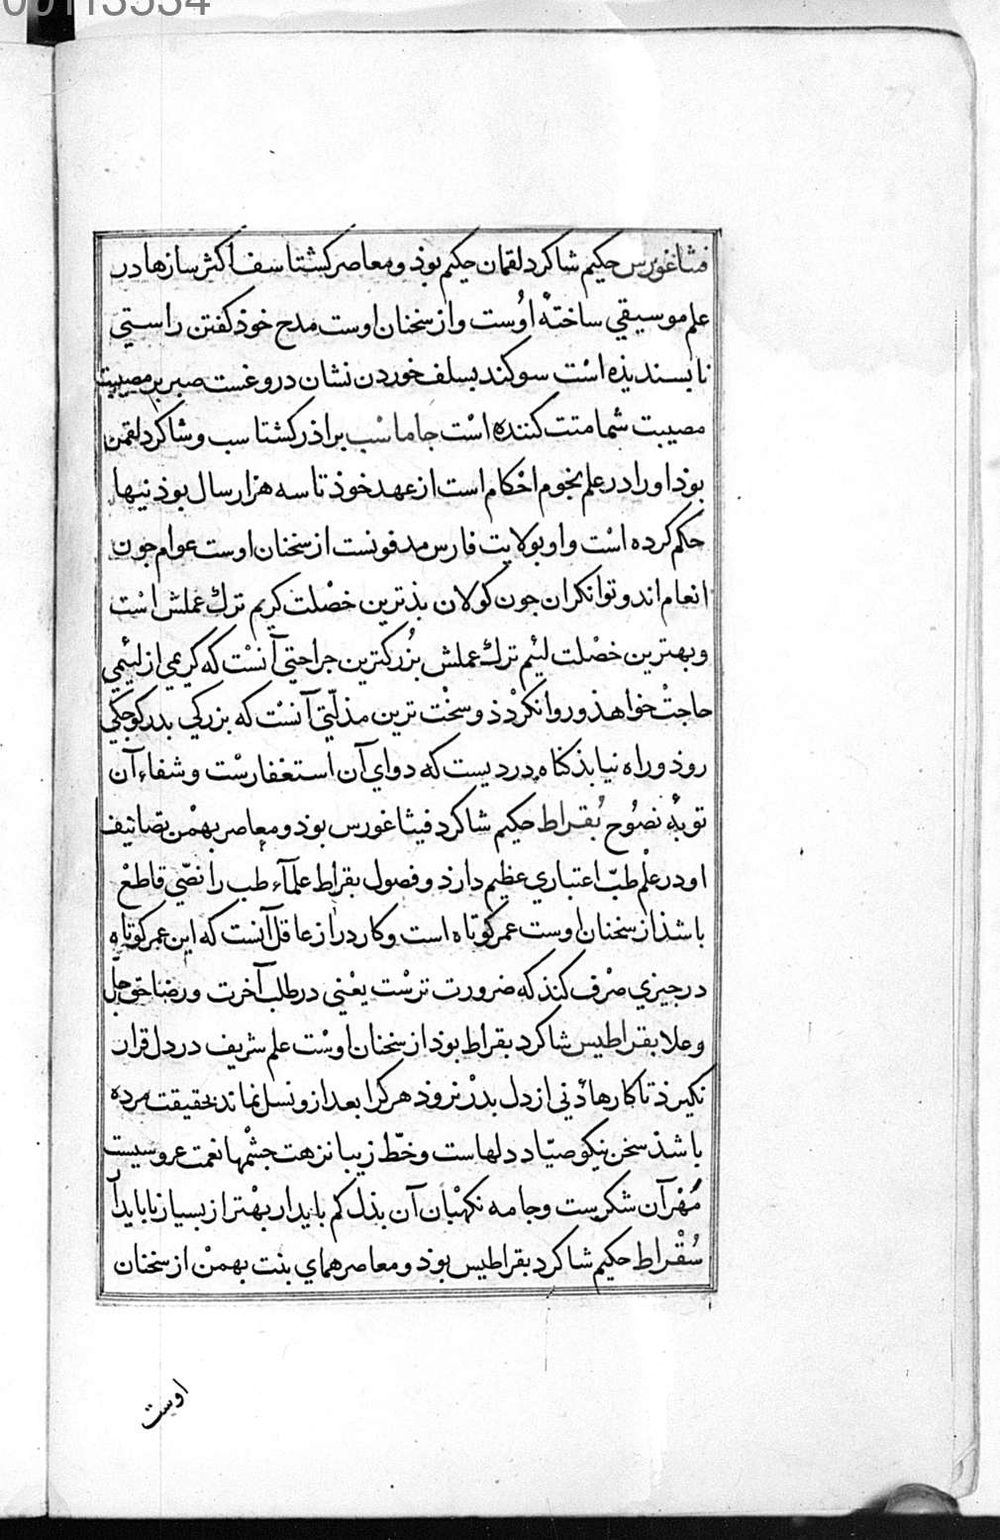 00113534
فيثاغورس حكيم شاكرد لقمان حكيم بوذ ومعاصر كشتاسف اكثر سازها در
علم موسيقي ساختهٔ اوست واز سخنان اوست مدح خوذ كفتن راستي
نابسنديذه است سوكند بسلف خوردن نشان دروغست صبر بر مصيبت
مصيبت شماتت كننده است جاماسب براذر كشتاسب وشاكرد لقمن
بوذ اورا در علم نجوم احكام است از عهد خوذ تا سه هزار سال بوذنيها
حكم كرده است واو بولايت فارس مدفونست از سخنان اوست عوام جون
انعام اند وتوانكران جون كولان بذترين خصلت كريم ترك عملش است
وبهترين خصلت لئيم ترك عملش بزركترين جراحتي آنست كه كريمي از لئيمي
حاجت خواهذ وروا نكردذ وسخت ترين مذلّتي آنست كه بزركي بدر كوجكي
روذ وراه نيابذ كناه درديست كه دواي آن استغفارست وشفاء آن
توبهٔ نصُوح بُقراط حكيم شاكرد فيثاغورس بوذ ومعاصر بهمن تصانيف
او در علم طبّ اعتباري عظيم دارذ وفصول بقراط علمآء طب را نصّي قاطع
باشذ از سخنان اوست عمر كوتاه است وكار دراز عاقل آنست كه اين عمر كوتاه
در جيزي صرف كنذ كه ضرورت ترست يعني در طلب آخرت ورضا حق جلّ
وعلا بقراطيس شاكرد بقراط بوذ از سخنان اوست علم شريف در دل قرار
نكيرذ تا كارهاءِ دني از دل بدر نروذ هركرا بعد ازو نسل نماند بحقيقت مرده
باشذ سخن نيكو صيّاد دلهاست وخطّ زيبا نزهت جشمها نعمت عروسيست
مَهْر آن شكرست وجامه نكهبان آن بذل كم بايدار بهتر از بسيار نابايدار
سُقْراط حكيم شاكرد بقراطيس بوذ ومعاصر هماي بنت بهمن از سخنان
اوست